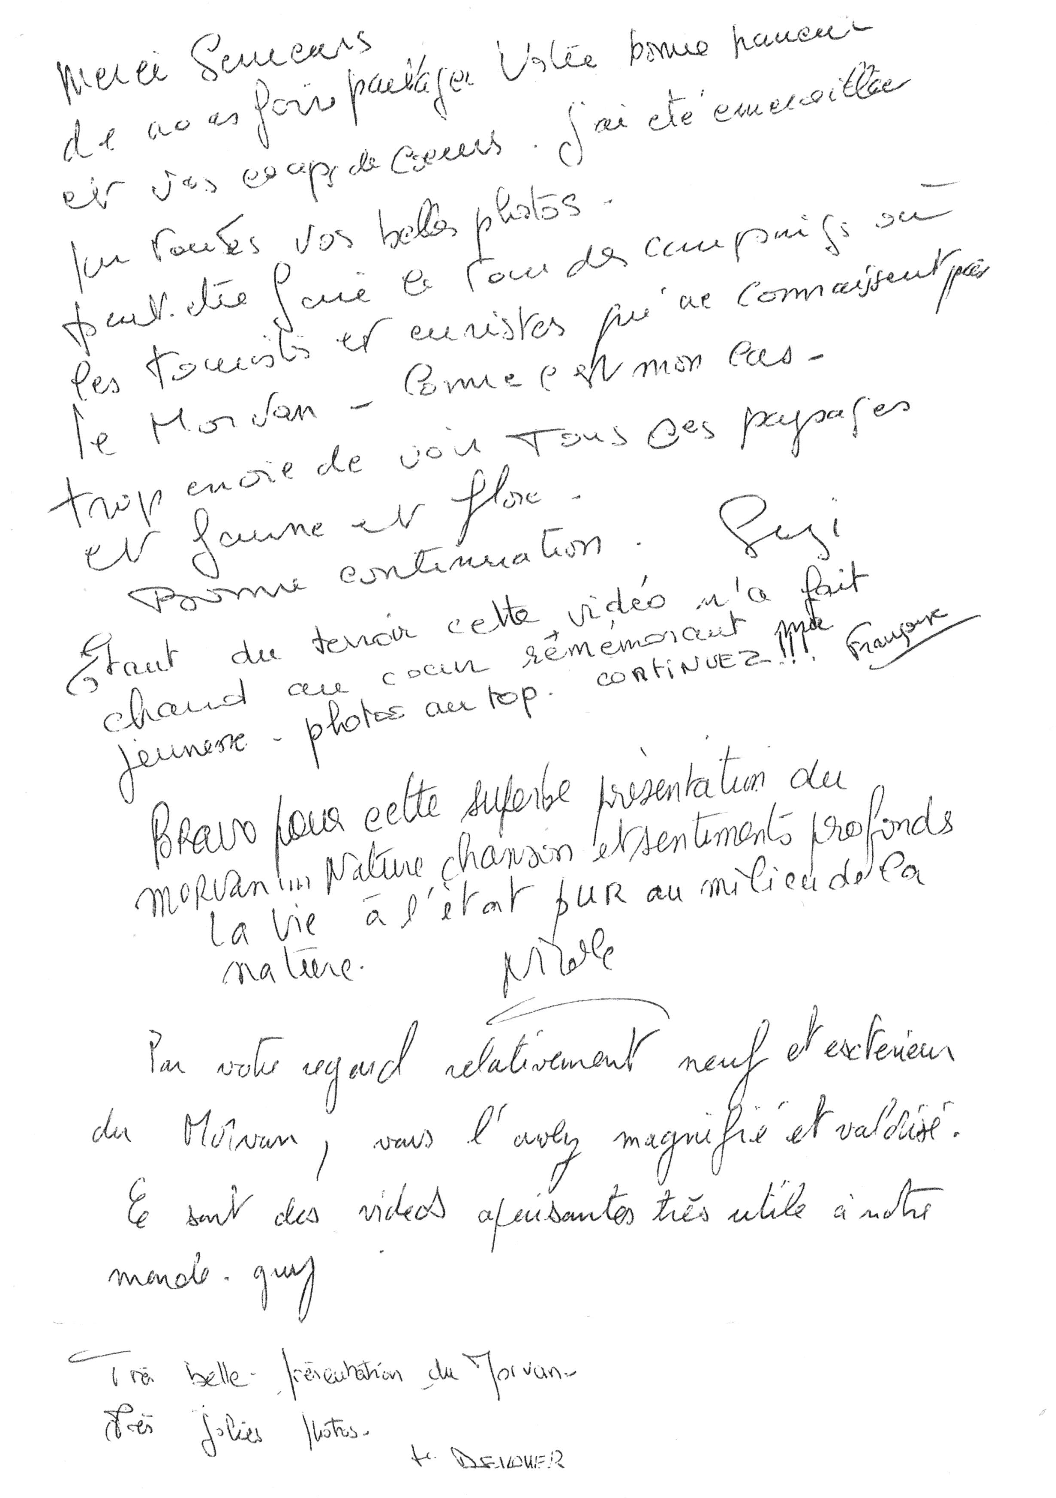 Merci
de nous faire partager Votre bonne
et vos coups de coeurs. J'ai été émerveillée
par toutes vos belles photos.
peut-être faire le tour des campings où
les touristes et curistes qui ne connaissent pas
le Morvan - Comme c'est mon cas -
trop envie de voir Tous ces paysages
et faune et flore.
Bonne continuation. Suzi
Étant du terroir cette vidéo m'a fait
chaud au coeur rémémorant ma
jeunesse - photos au top. CONTINUEZ!!! Françoise
BRAVO pour cette superbe présentation du
MORVAN!... Nature chanson et sentiments profonds
La vie à l'état pur au milieu de la
nature. Nicole
Par votre regard relativement neuf et exterieur
du Morvan, vous l'avez magnifié et valorisé.
Ce sont des videos apaisantes très utile à notre
monde. guy
Très belle présentation du Morvan
Très jolies photos.